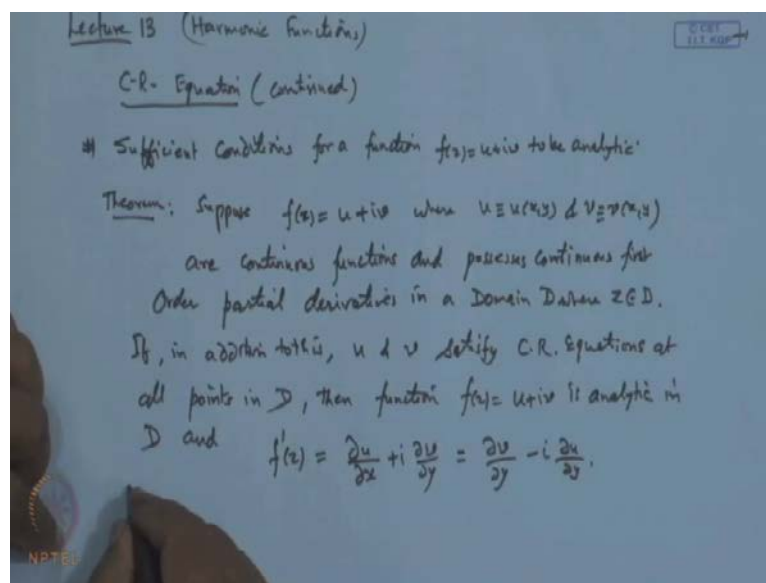 Lecture 13 (Harmonic Functions)
C-R- Equation (continued)
# Sufficient Conditions for a function f(z)=u+iv to be analytic.
Theorem: Suppose f(z) = u+iv where u ≡ u(x,y) & v ≡ v(x,y)
are continuous functions and possesses continuous first
Order partial derivatives in a Domain D where z∈D.
If, in addition to this, u & v satisfy C.R. Equations at
all points in D, then function f(z)= u+iv is analytic in
D and f'(z) = ∂u/∂x + i ∂v/∂y = ∂v/∂y - i ∂u/∂y.
NPTEL